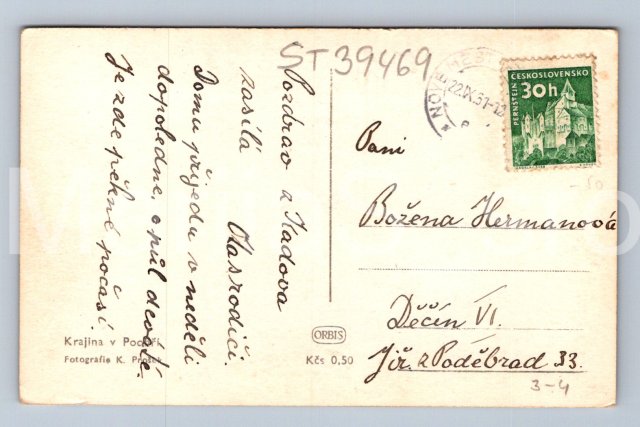 ST 39469
Pozdrav z Kadova
zasílá Otasrodiči.
Domu přijedu v neděli
dopoledne, o půl deváté.
Je zde pěkné počasí.
Krajina v
Fotografie K.
ORBIS
Kčs 0,50
NOVÉ MĚST
22.IX.61-12
ČESKOSLOVENSKO
30h
PERNŠTEJN
Paní
Božena Hermanová
Děčín VI.
Jiř. z Poděbrad 33.
3-4
-50